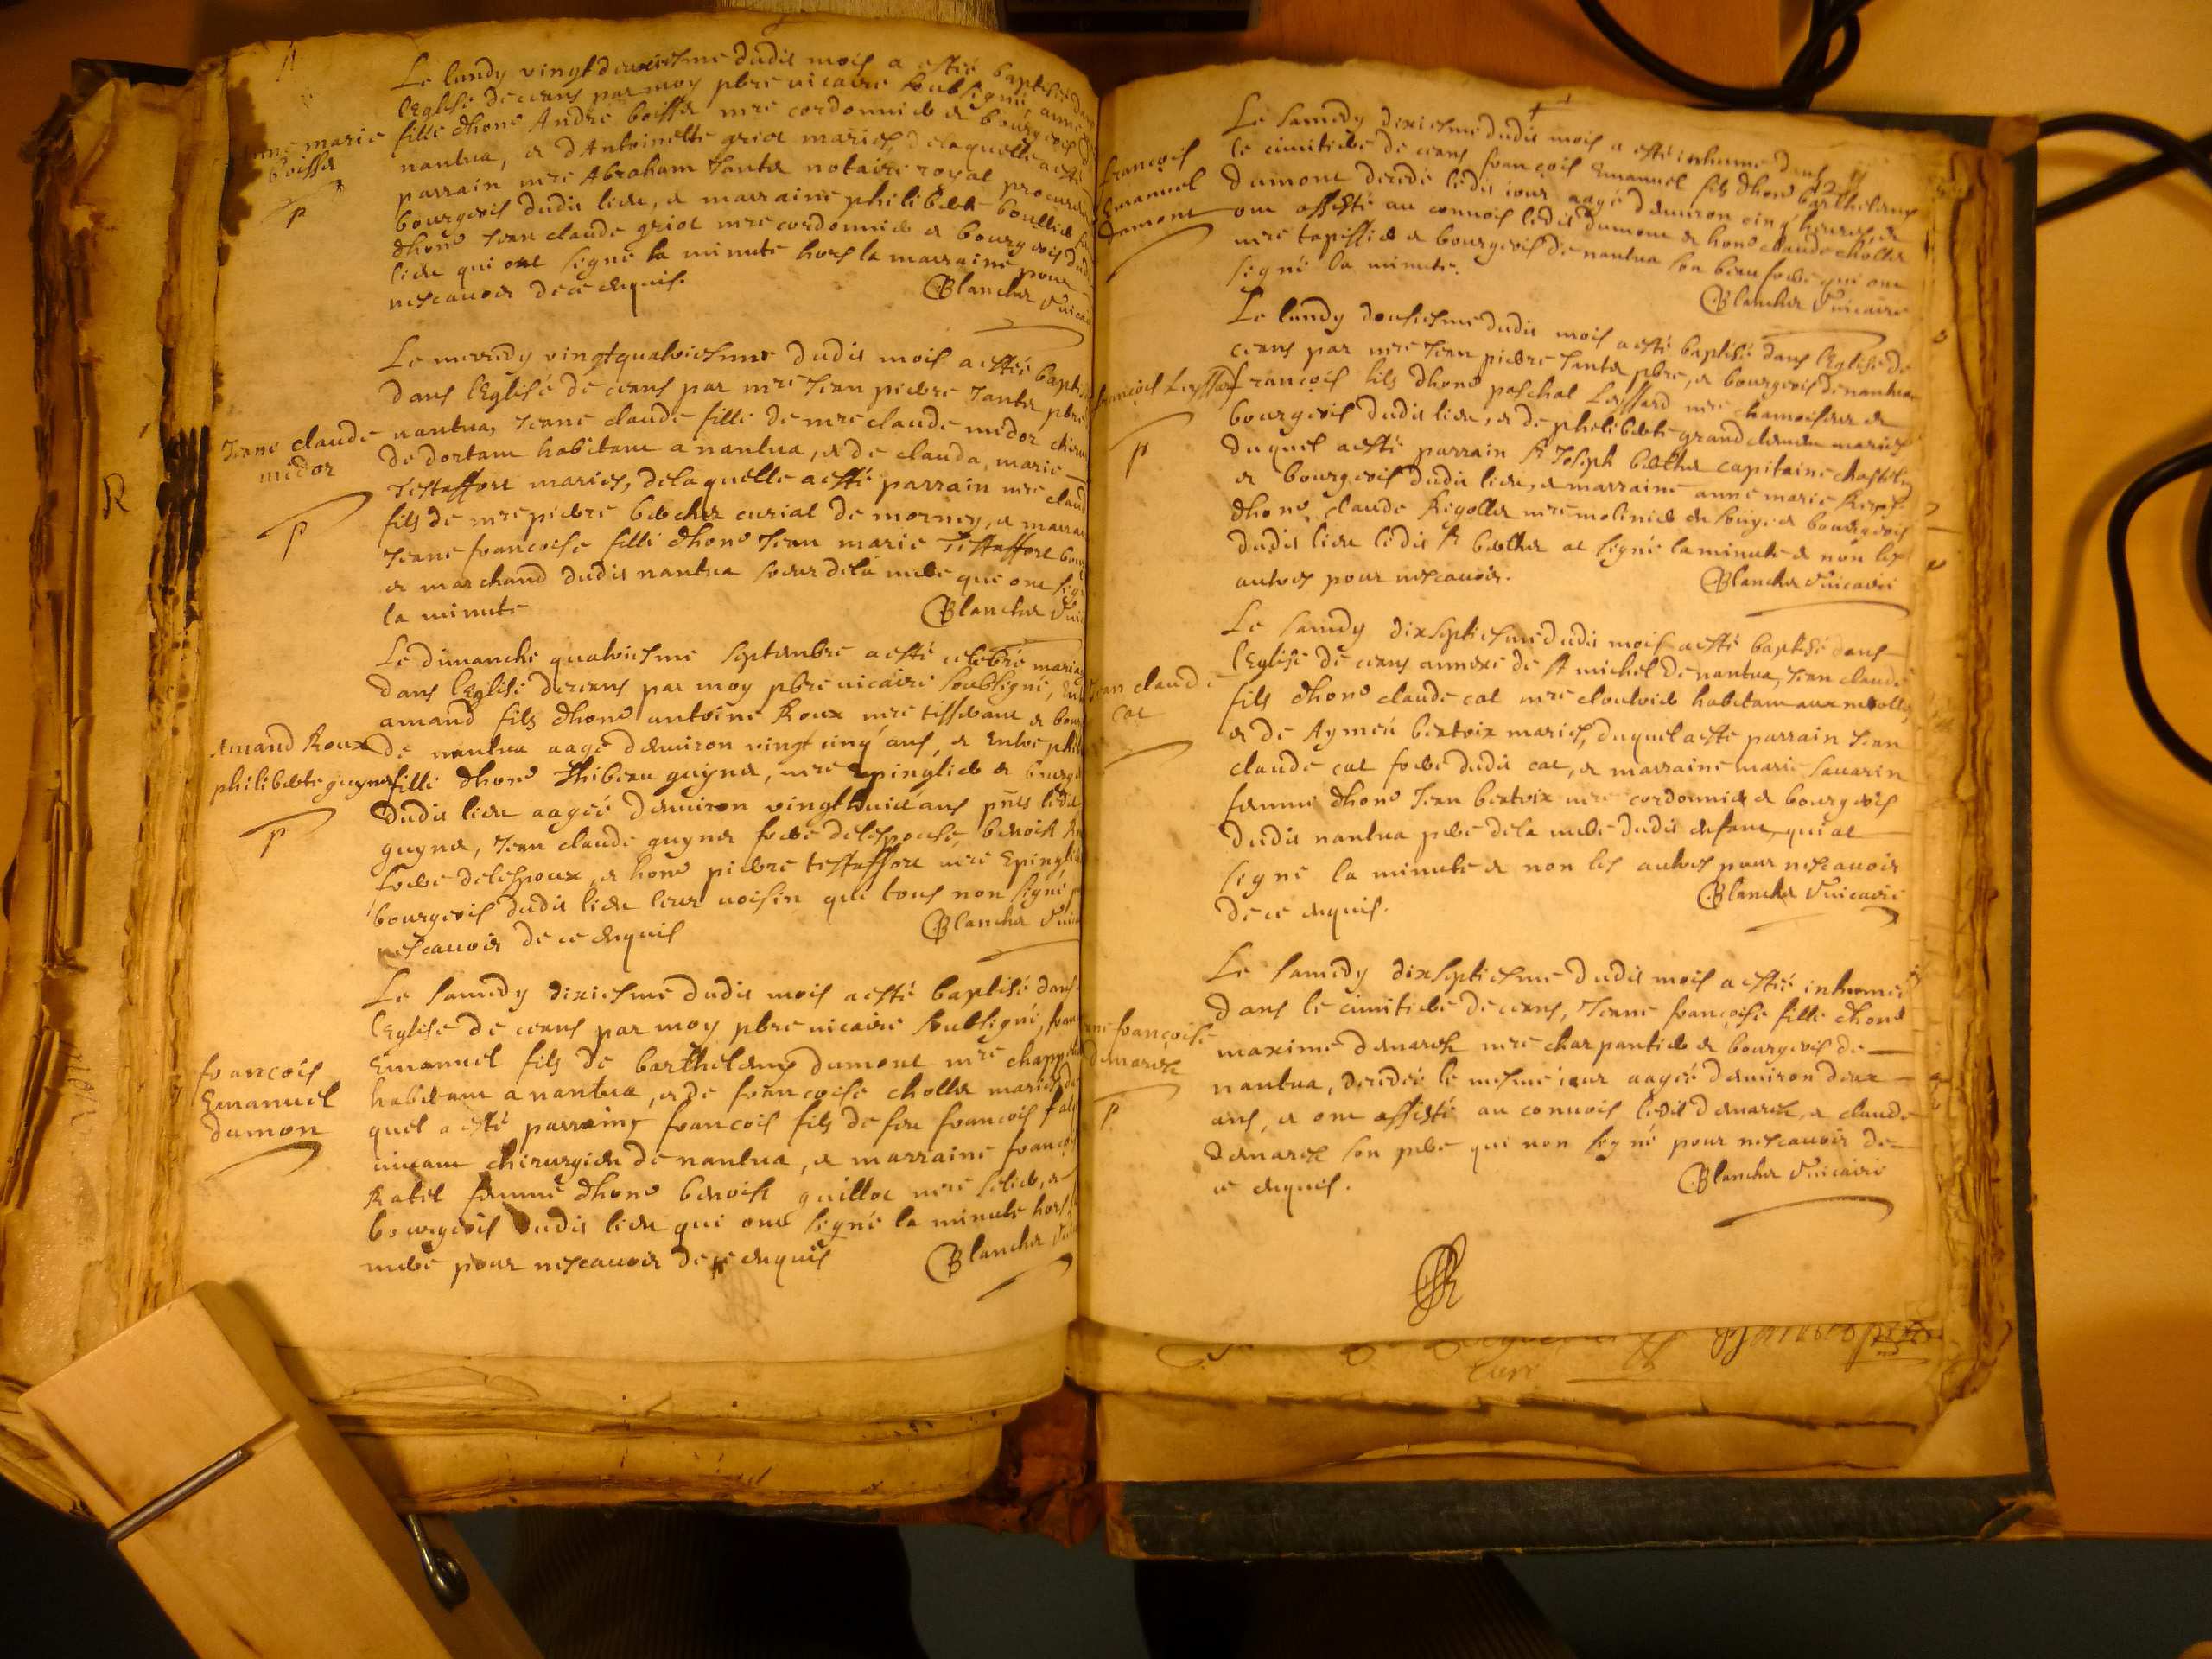 Le lundy vingt deuxiesme dudit mois a esté baptisée dans
l'Eglise de ceans par moy pbre vicaire soubsigné, anne
anne marie boisset
fille d'hono André boisset mre cordonnier et bourgeois de
nantua, et d'Antoinette griot mariés, de laquelle a esté
parrain mre Abraham Jantet notaire royal procureur
bourgeois dudit lieu, et marraine philiberte boullier
d'hono Jean claude griot mre cordonnier et bourgeois dudit
lieu qui ont signé la minute hors la marraine pour
nescavoir de ce enquis.
Blanchet vicaire
P
Le mecredy vingtquatriesme dudit mois a esté baptisée
dans l'Eglise de ceans par mre Jean pierre Jantet pbre
Jeane claude midor
nantua, Jeane claude fille de mre claude midor
de dortam habitant a nantua, et de clauda, marie
Testaffort mariés, de laquelle a esté parrain mre claude
fils de mre pierre becher curial de mornay, et marraine
Jeane francoise fille d'hono Jean marie Testaffort
et marchand dudit nantua soeur de la mere que ont signé
la minute
Blanchet vicaire
P
Le dimanche quatriesme septembre a esté celebré mariage
dans l'Eglise de ceans par moy pbre vicaire soubsigné, Entre
amand fils d'hono antoine Roux mre tisserant et bourgeois
Amand Roux
de nantua aagé denviron vingt cinq ans, et Entre
philiberte guynet
fille d'hono Thibeau guynet, mre epinglier et bourgeois
dudit lieu aagée denviron vingthuict ans pnts ledit
guynet, Jean claude guynet frere de lespouse, benoist
frere de lespoux, et hono pierre testaffort mre Epinglier
bourgeois dudit lieu leur voisin qui tous non signé
nescavoir de ce enquis
Blanchet vicaire
P
Le samedy dixiesme dudit mois a esté baptisé dans
l'Eglise de ceans par moy pbre vicaire soubsigné,
francois Emanuel dumon
Emanuel fils de barthelemy dumont mre
habitant a nantua, et de francoise chollet mariés
quel a esté parraing francois fils de feu francois
vivant chirurgien de nantua, et marraine
Ratel femme d'hono benoist guillot mre sellier, et
bourgeois dudit lieu qui ont signé la minute hors
mere pour nescavoir de ce enquis
Blanchet vicaire
Le samedy dixiesme dudit mois a esté inhumé dans
le cimitiere de ceans francois Emanuel fils d'hono barthelemy
francois Emanuel dumont
dumont decedé ledit jour aagé denviron cinq heures, et
ont assisté au convois ledit dumont et hono claude chollet
mre tapissier et bourgeois de nantua son beau frere qui ont
signé la minute.
Blanchet vicaire
Le lundy dousiesme dudit mois a esté baptisé dans l'Eglise de
ceans par mre Jean pierre Jantet pbre, et bourgeois de nantua
francois Leyssard
francois fils d'hono paschal Leyssard mre chamoiseur et
bourgeois dudit lieu, et de philiberte grandclement mariés
duquel a esté parrain sr Joseph berthet capitaine chastelain
et bourgeois dudit lieu, et marraine anne marie
d'hono claude Rigollet mre molinier en soüye et bourgeois
dudit lieu ledit sr berthet at signé la minute et non les
autres pour nescavoir.
Blanchet vicaire
P
Le samedy dixseptiesme dudit mois a esté baptisé dans
l'Eglise de ceans annexe de st michel de nantua, Jean claude
Jean claude cat
fils d'hono claude cat mre cloutrier habitant aux
et de Aymée bertrix mariés, duquel a esté parrain Jean
claude cat frere dudit cat, et marraine marie savarin
femme d'hono Jean bertrix mre cordonnier et bourgeois
dudit nantua pere de la mere dudit enfant, qui at
signé la minute et non les autres pour nescavoir
de ce enquis.
Blanchet vicaire
Le samedy dixseptiesme dudit mois a esté inhumée
dans le cimitiere de ceans, Jeane françoise fille d'hono
françoise
maxime mre charpantier et bourgeois de
nantua, decedée le mesme jour aagée denviron deux
ans, et ont assisté au convois ledit et claude
son pere qui non signé pour nescavoir de
ce enquis.
Blanchet vicaire
P